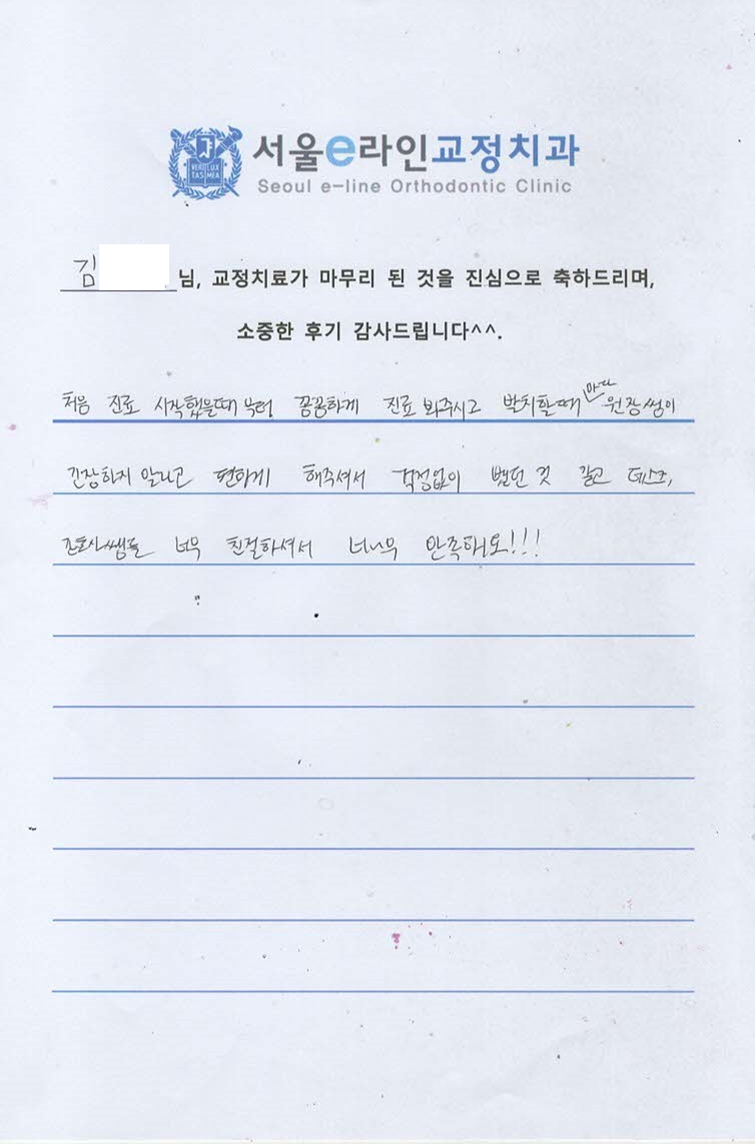 VERI LUX TAS MEA
서울e라인교정치과
Seoul e-line Orthodontic Clinic
김 님, 교정치료가 마무리 된 것을 진심으로 축하드리며,
소중한 후기 감사드립니다^^.
처음 진료 시작했을때부터 꼼꼼하게 진료 봐주시고 발치할때마다 원장쌤이
긴장하지 말라고 편하게 해주셔서 걱정없이 뺐던 것 같고 데스크,
쌤들 너무 친절하셔서 너어무 만족해요!!!